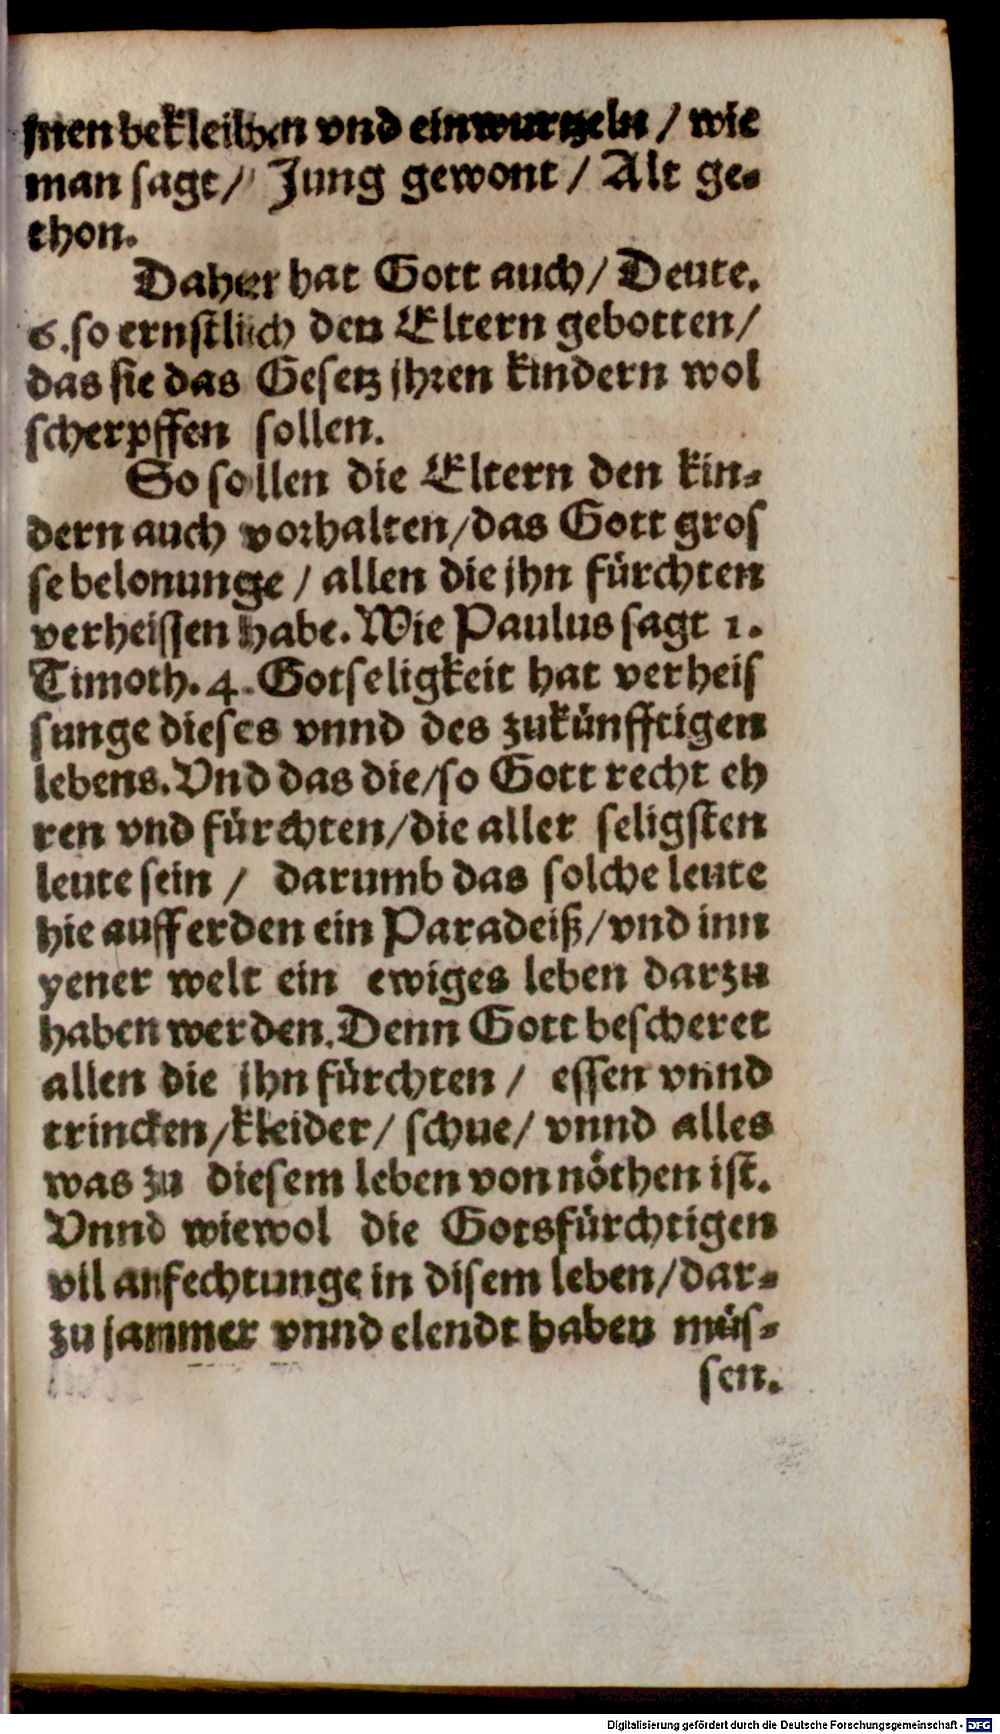 men bekleiben vnd einwurtzeln / wie
man sagt / Jung gewont / Alt ge-
thon.
Daher hat Gott auch / Deute.
6. so ernstlich den Eltern gebotten /
das sie das Gesetz jhren kindern wol
scherpffen sollen.
So sollen die Eltern den kin-
dern auch vorhalten / das Gott gros
se belonunge / allen die jhn fürchten
verheissen habe. Wie Paulus sagt 1.
Timoth. 4. Gotseligkeit hat verheis
sunge dieses vnnd des zukünfftigen
lebens. Vnd das die / so Gott recht eh
ren vnd fürchten / die aller seligsten
leute sein / darumb das solche leute
hie auff erden ein Paradeiß / vnd inn
yener welt ein ewiges leben darzu
haben werden. Denn Gott bescheret
allen die jhn fürchten / essen vnnd
trincken / kleider / schue / vnnd alles
was zu diesem leben von nöthen ist.
Vnnd wiewol die Gotsfürchtigen
vil anfechtunge in disem leben / dar-
zu jammer vnnd elendt haben müs-
sen.
Digitalisierung gefördert durch die Deutsche Forschungsgemeinschaft - DFG